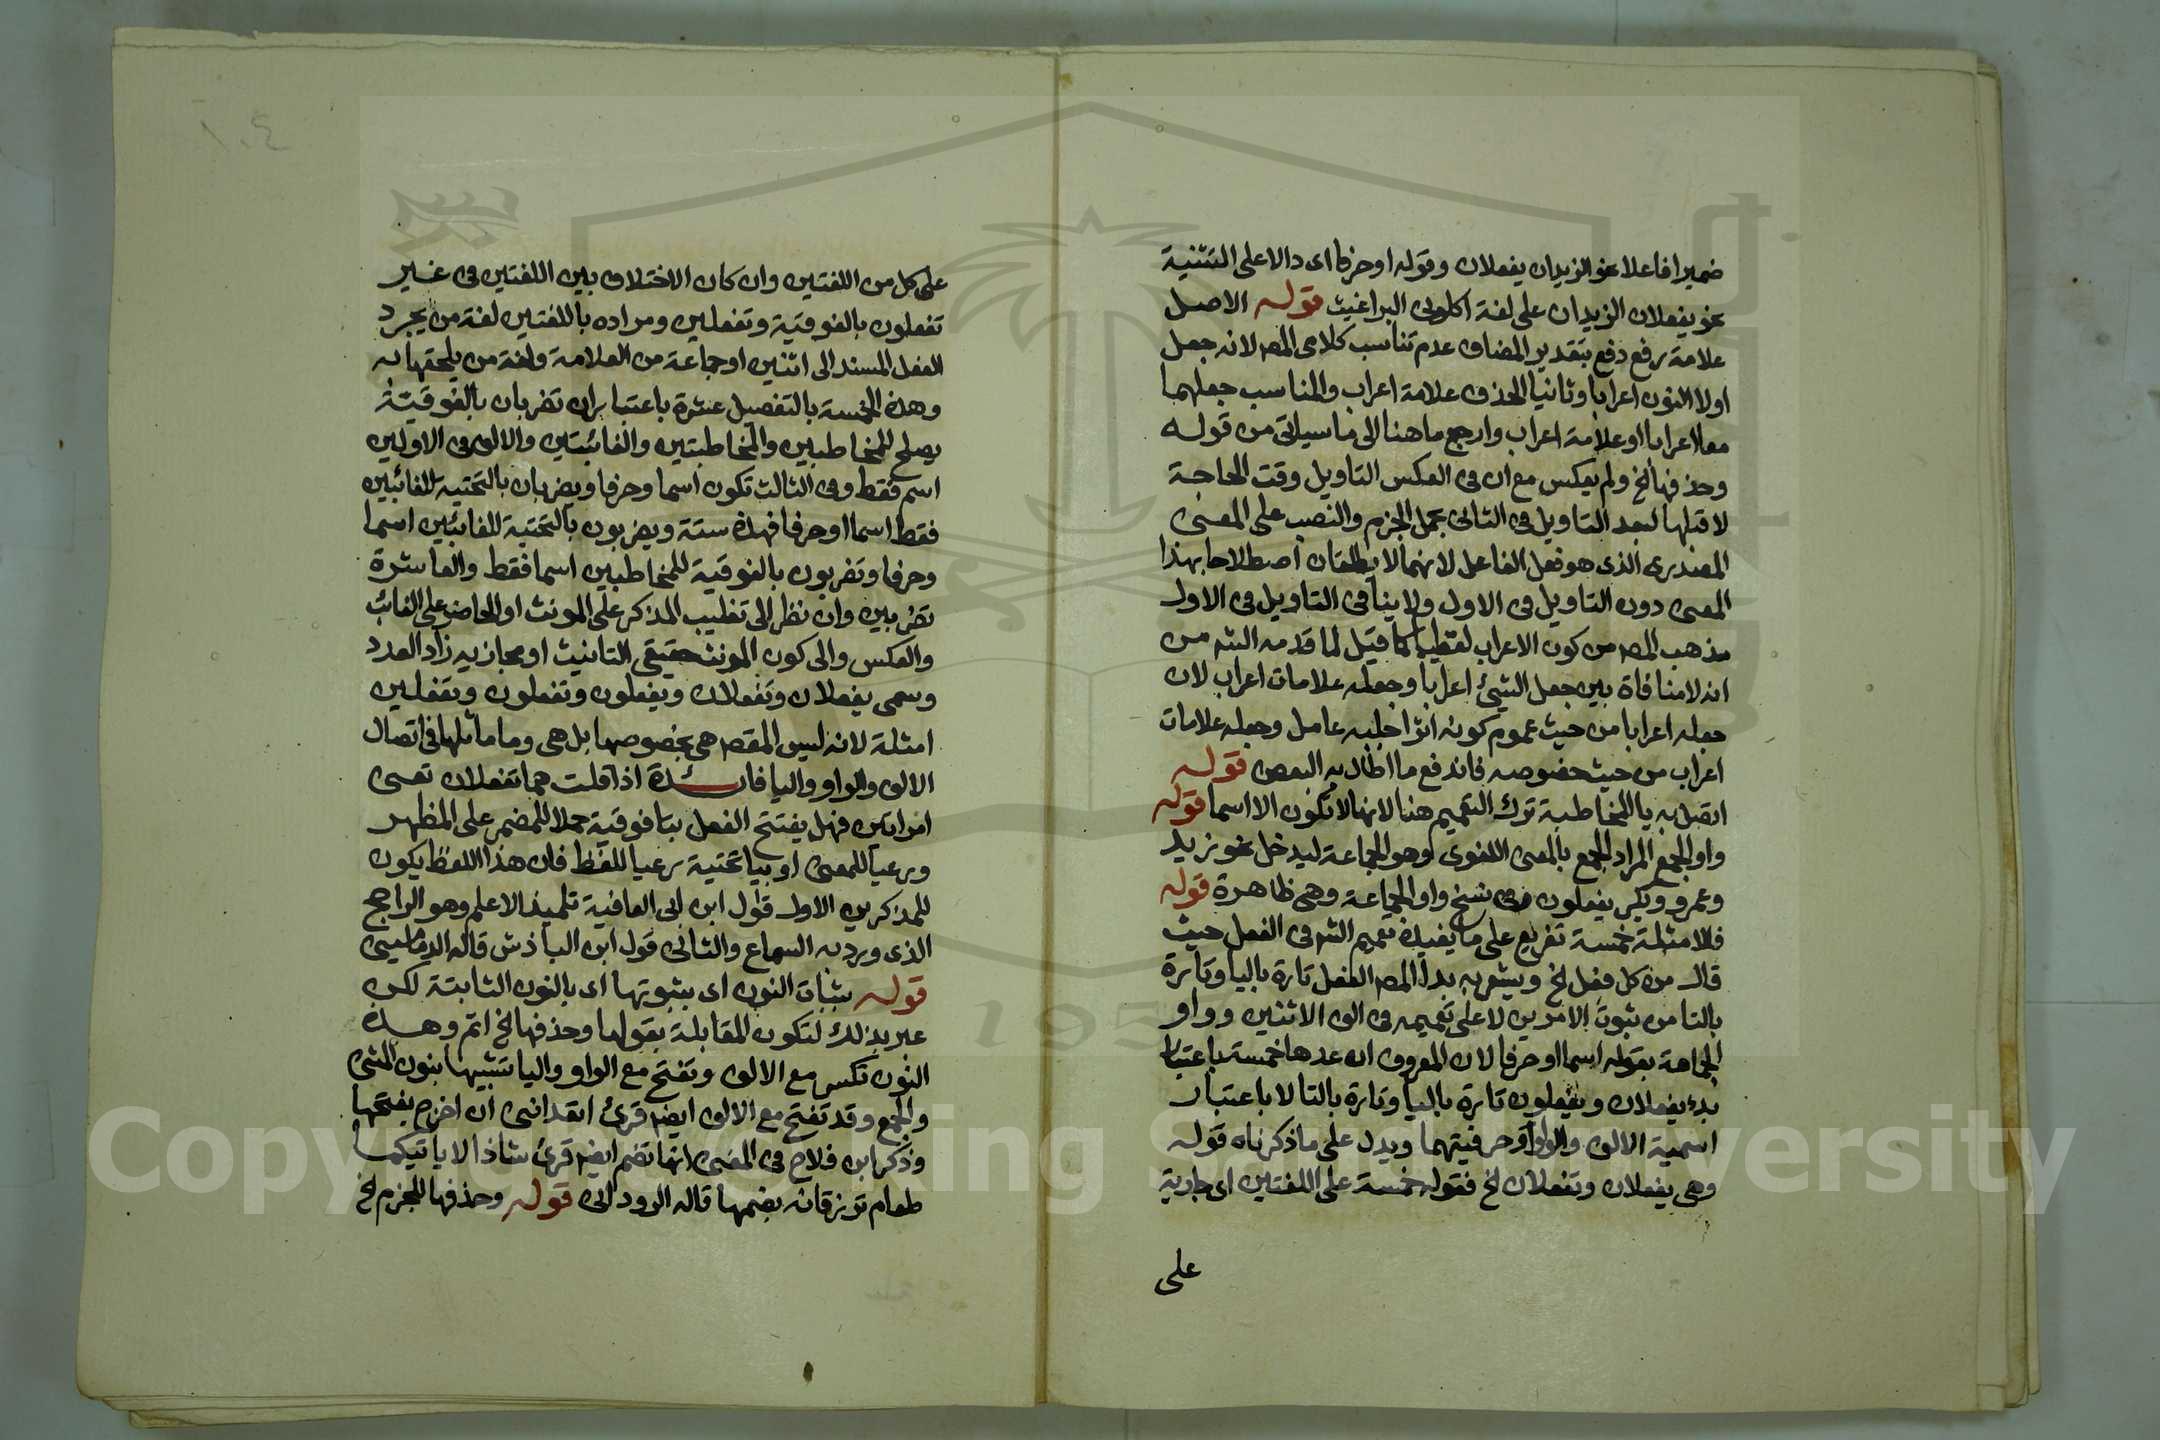 ضميرا فاعلا نحو الزيدان يفعلان وقوله او حرفا اى دالا على التثنية
نحو يفعلان الزيدان على لغة اكلونى البراغيث قوله الاصل
علامة رفع دفع بتقدير المضاف عدم تناسب كلامى المص لانه جعل
اولا النون اعرابا وثانيا الحذف علامة اعراب والمناسب جعلهما
معا اعرابا او علامة اعراب وارجع ما هنا الى ما سياتى من قوله
وحذفها الخ ولم يعكس مع ان فى العكس التاويل وقت الحاجة
لا قبلها لبعد التاويل فى الثانى بحمل الجزم والنصب على المعنى
المصدرى الذى هو فعل الفاعل لانهما لا يطلقان اصطلاحا بهذا
المعنى دون التاويل فى الاول ولا ينافى التاويل فى الاول
مذهب المص من كون الاعراب لفظيا كما قيل لما قدمه الشم من
انه لا منافاة بين جعل الشيئ اعرابا وجعله علامات اعراب لان
جعله اعرابا من حيث عموم كونه اثرا جلبه عامل وجعله علامات
اعراب من حيث خصوصه فاندفع ما اطال به البعض قوله
اتصل به يا المخاطبة ترك التعميم هنا لانها لا تكون الا اسما قوله
واو الجمع المراد الجمع بالمعنى اللغوى وهو الجماعة ليدخل نحو زيد
وعمرو وبكر يفعلون وفى نسخ واو الجماعة وهى ظاهرة قوله
فالامثلة خمسة تفريع على ما يفيده تعميم الشم فى الفعل حيث
قال من كل فعل الخ ويشعر به بدأ المص الفعل تارة باليا وتارة
بالتا من ثبوت الامرين لا على تعميمه فى الف الاثنين وواو
الجماعة بقوله اسما او حرفا لان المعروف ان عدها خمسة باعتبار
بدء يفعلان ويفعلون تارة باليا وتارة بالتا لا باعتبار
اسمية الالف والواو وحرفيتهما ويدل على ما ذكرناه قوله
وهى يفعلان وتفعلان الخ فقوله خمسة على اللغتين اى جارية
على
على كل من اللغتين وان كان الاختلاف بين اللغتين فى غير
تفعلون بالفوقية وتفعلين ومراده باللغتين لغة من يجرد
الفعل المسند الى اثنين او جماعة من العلامة ولغة من يلحقها به
وهذه الخمسة بالتفصيل عشرة باعتبار ان تضربان بالفوقية
يصلح للمخاطبين والمخاطبتين والغائبتين والالف فى الاولين
اسم فقط وفى الثالث تكون اسما وحرفا ويضربان بالتحتية للغائبين
فقط اسما او حرفا فهذه ستة ويضربون بالتحتية للغائبين اسما
وحرفا وتضربون بالفوقية للمخاطبين اسما فقط والعاشرة
تضربين وان نظر الى تغليب المذكر على المونث او الحاضر على الغائب
والعكس والى كون المونث حقيقى التانيث او مجازيه زاد العدد
وسمى يفعلان وتفعلان ويفعلون وتفعلون وتفعلين
امثلة لانه ليس المقصد هى بخصوصها بل هى وما ماثلها فى اتصال
الالف والواو واليا فائدة اذا قلت هما تفعلان تعنى
امراتين فهل يفتتح الفعل بتا فوقية حملا للمضمر على المظهر
ورعيا للمعنى او بيا تحتية رعيا للفظ فان هذا اللفظ يكون
للمذكرين الاول قول ابن ابى العافية تلميذ الاعلم وهو الراجح
الذى ورد به السماع والثانى قول ابن الباذش قاله الدماميني
قوله بثبات النون اى بثبوتها اى بالنون الثابتة لكن
عبر بذلك لتكون المقابلة بقولها وحذفها الخ اتم وهذه
النون تكسر مع الالف وتفتح مع الواو واليا تشبيها بنون المثنى
والجمع وقد تفتح مع الالف ايضا قرئ اتعداننى ان اخرج بفتحها
وذكر ابن فلاح فى المغنى انها تضم ايضا قرئ شاذا لا ياتيكما
طعام ترزقانه بضمها قاله الرودانى قوله وحذفها للجزم الخ
Copyright © King Saud University
195